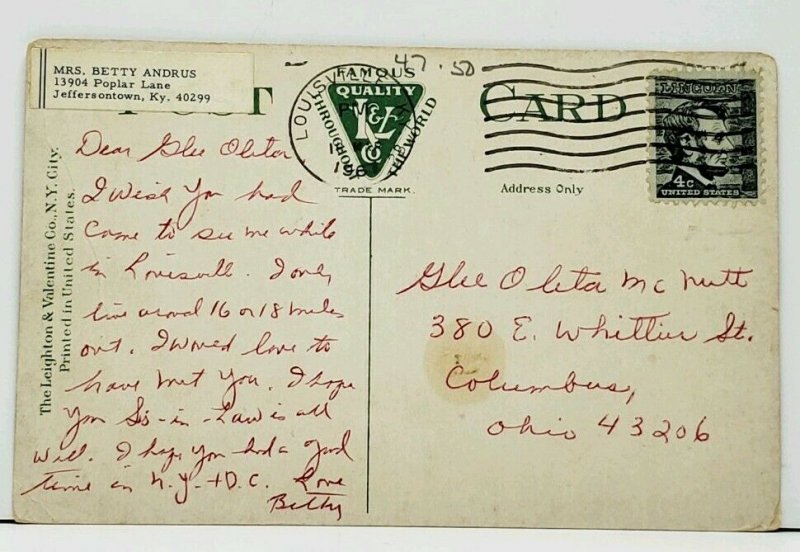 MRS. BETTY ANDRUS
13904 Poplar Lane
Jeffersontown, Ky. 40299
POST CARD
47.50
FAMOUS
QUALITY
THROUGHOUT THE WORLD
TRADE MARK.
LOUISVILLE
PM
196
LINCOLN
4c
UNITED STATES
Address Only
The Leighton & Valentine Co., N.Y. City.
Printed in United States.
Dear Glee Oleta
I Wish You had
Come to see me while
in Louisville. I only
live around 16 or 18 miles
out. I would love to
have met You. I hope
you Sis-in-Law is all
Well. I hope you had a good
time in N.Y. + D.C. Love
Betty
Glee Oleta McNutt
380 E. Whittier St.
Columbus,
Ohio 43206